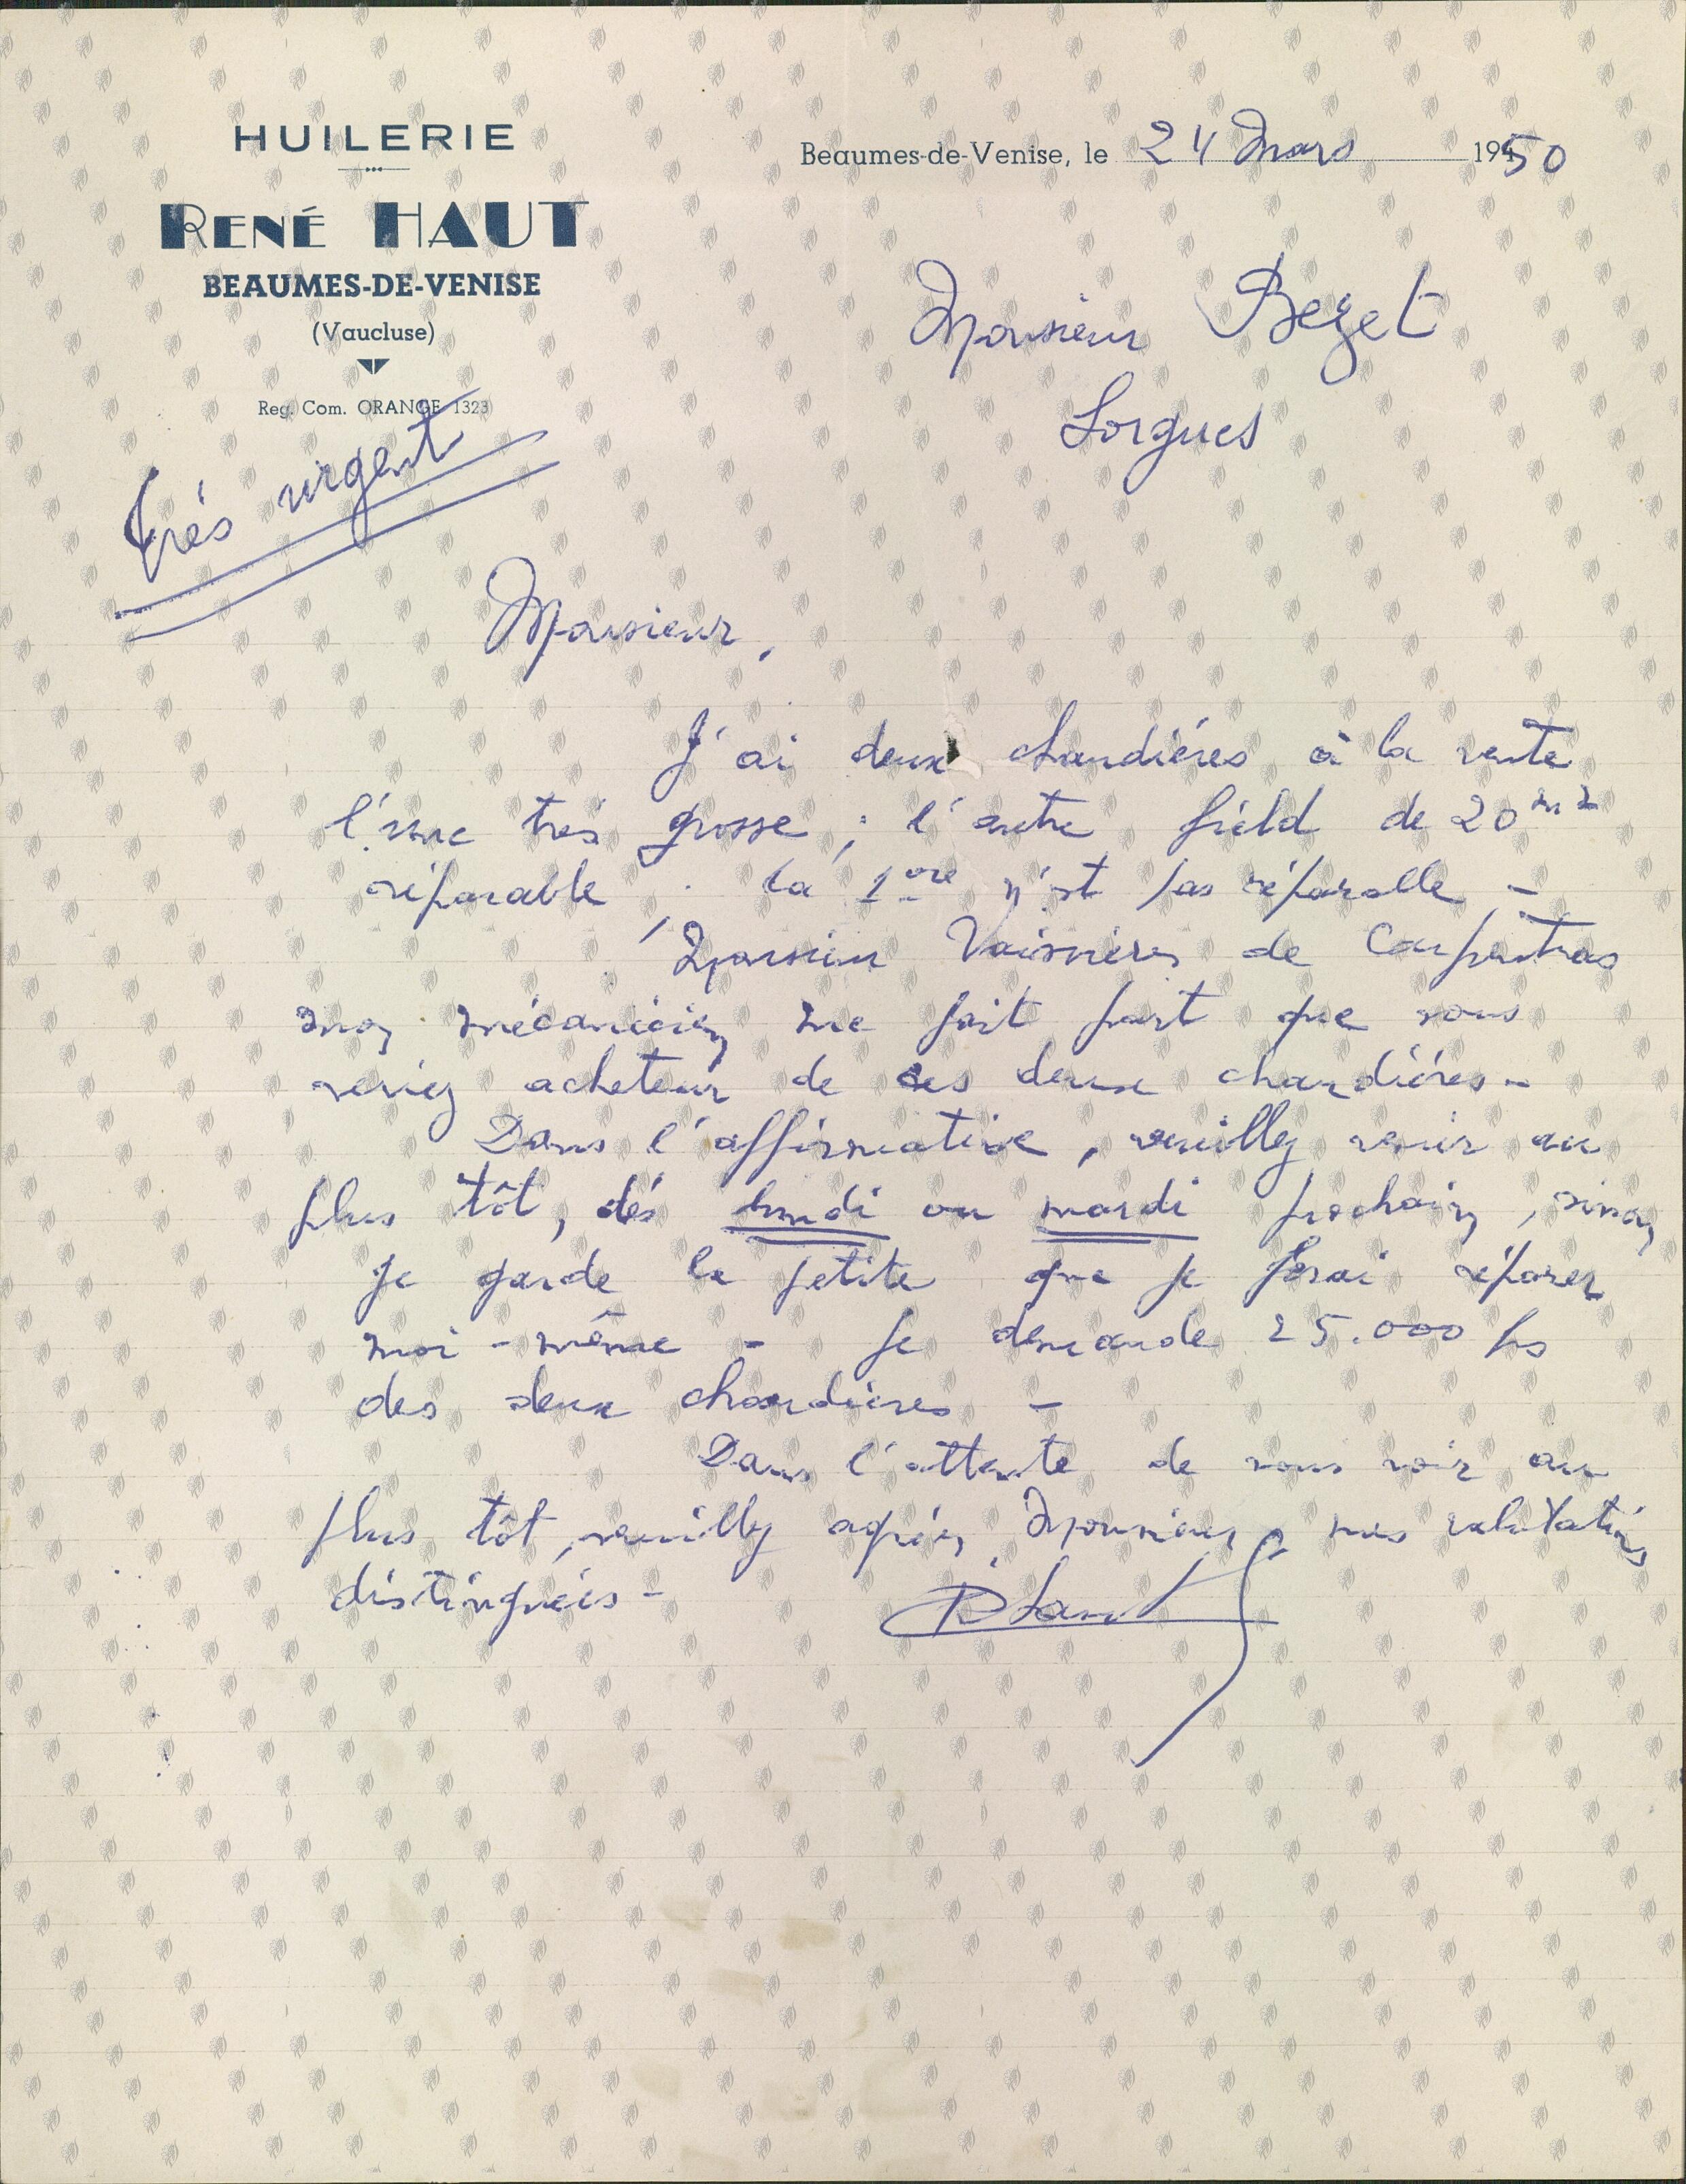 HUILERIE
RENÉ HAUT
BEAUMES-DE-VENISE
(Vaucluse)
Reg. Com. ORANGE 1323
Beaumes-de-Venise, le 24 Mars 1950
Monsieur Bezet
Sorgues
très urgent
Monsieur,
J'ai deux chaudiéres à la vente
l'une trés grosse ; l'autre field de 20 m2
réparable . La 1ere n'est pas réparable -
Monsieur de Carpentras
mon mécanicien me fait part que vous
seriez acheteur de ces deux chaudiéres -
Dans l'affirmative, veuillez venir au
plus tôt, dés lundi ou mardi prochain, sinon
je garde la petite que je ferai réparer
moi-même - Je demande 25.000 frs
des deux chaudières -
Dans l'attente de vous voir au
plus tôt, veuillez agréer, Monsieur, mes salutations
distinguées -
R Haut